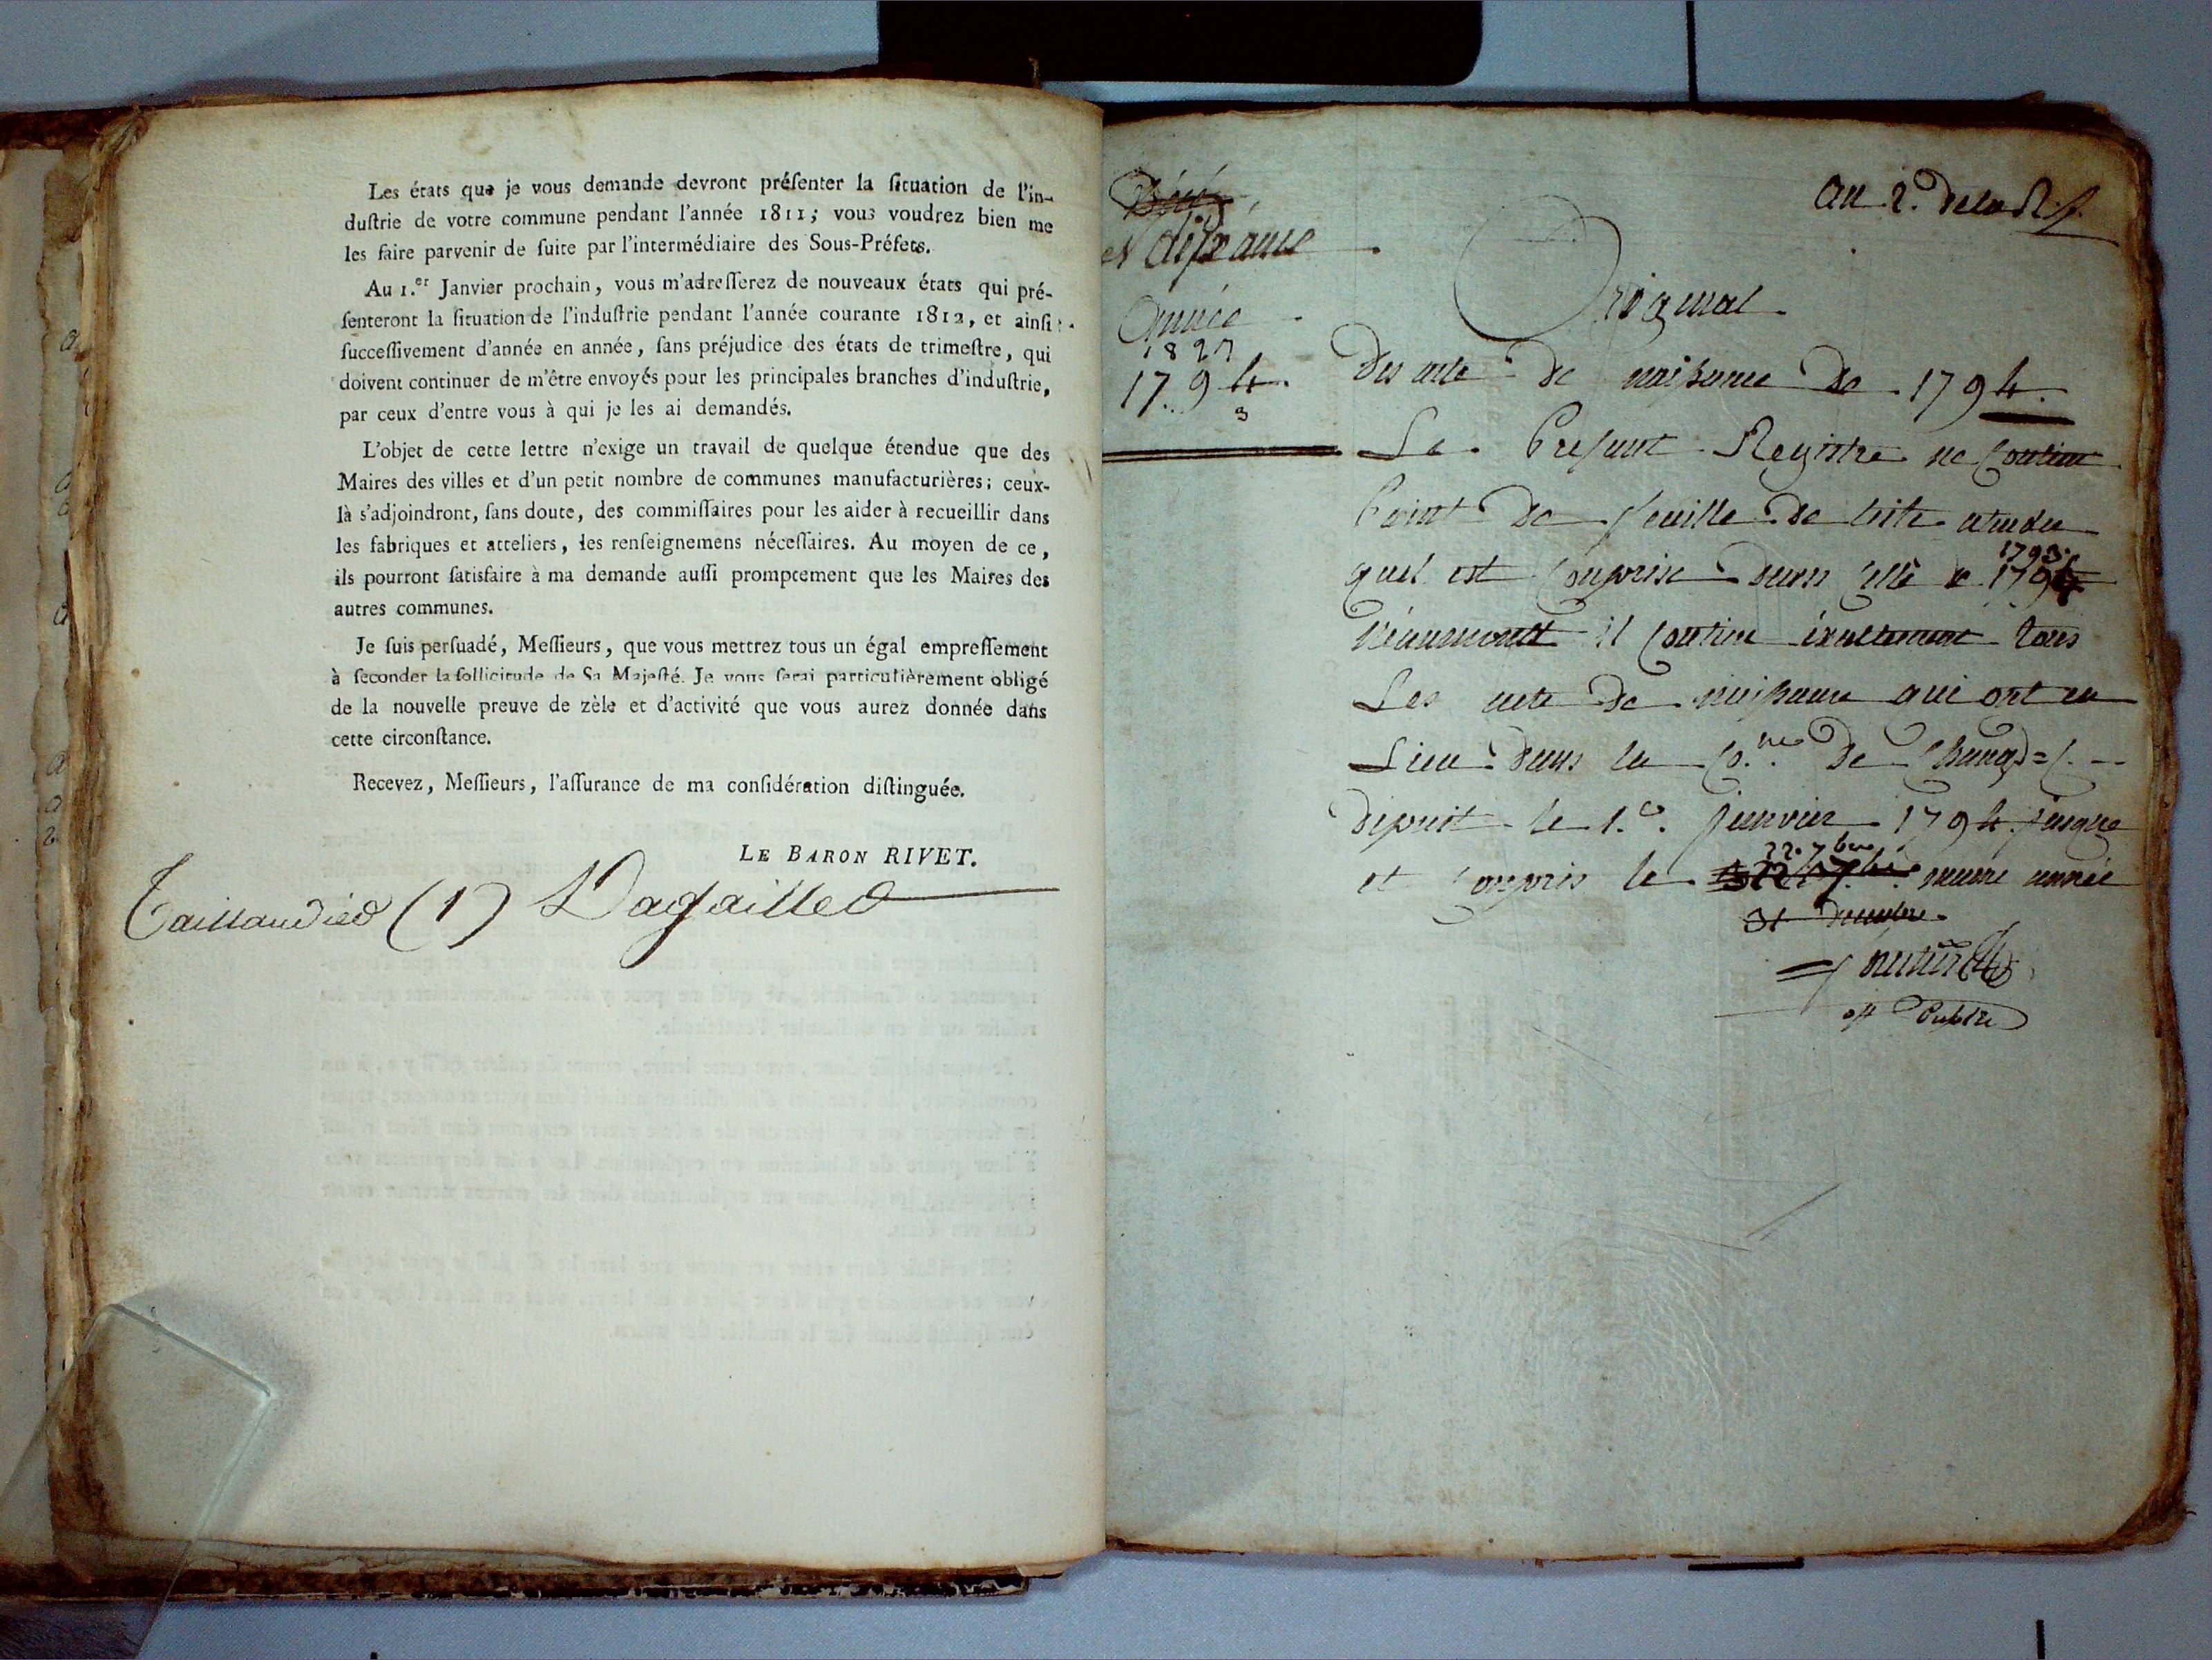 Les états que je vous demande devront préſenter la ſituation de l'in-
duſtrie de votre commune pendant l'année 1811; vous voudrez bien me
les faire parvenir de ſuite par l'intermédiaire des Sous-Préfets.
Au 1.er Janvier prochain, vous m'adreſſerez de nouveaux états qui pré-
ſenteront la ſituation de l'induſtrie pendant l'année courante 1812, et ainſi
ſucceſſivement d'année en année, ſans préjudice des états de trimeſtre, qui
doivent continuer de m'être envoyés pour les principales branches d'induſtrie,
par ceux d'entre vous à qui je les ai demandés.
L'objet de cette lettre n'exige un travail de quelque étendue que des
Maires des villes et d'un petit nombre de communes manufacturières; ceux-
là s'adjoindront, ſans doute, des commiſſaires pour les aider à recueillir dans
les fabriques et atteliers, les renſeignemens néceſſaires. Au moyen de ce,
ils pourront ſatisfaire à ma demande auſſi promptement que les Maires des
autres communes.
Je ſuis perſuadé, Meſſieurs, que vous mettrez tous un égal empreſſement
à ſeconder la ſollicitude de Sa Majeſté. Je vous ſerai particulièrement obligé
de la nouvelle preuve de zèle et d'activité que vous aurez donnée dans
cette circonſtance.
Recevez, Meſſieurs, l'aſſurance de ma conſidération diſtinguée.
LE BARON RIVET.
Taillandier (1)
an 2.
et
Année
1827
1794.
3
Original
Des acte de naissance de 1794.
Le Present Registre ne contient
Point de feuille de
quel est comprise dans celle de 1793
il contien exactement tous
Les acte de naissance qui ont eu
Lieu dans la Co.ne de
depuit le 1.e janvier 1794 jusque
et compris le 22. 7bre meme année
31 decembre
off Public